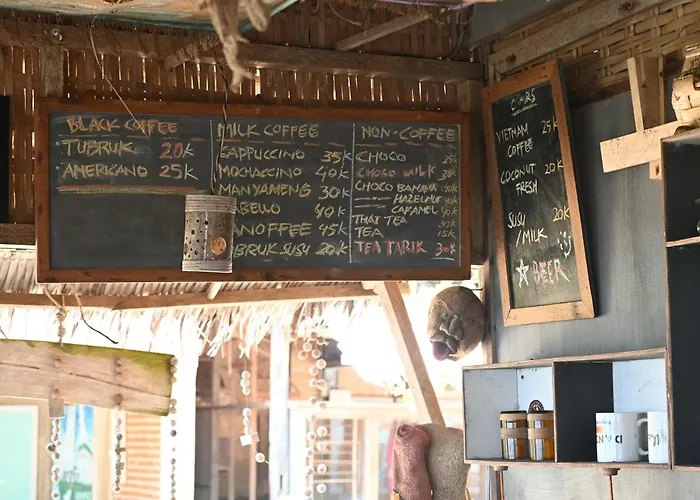 BLACK COFFEE
TUBRUK 20K
AMERICANO 25K
MILK COFFEE
CAPPUCCINO 35K
MOCHACCINO 40K
MANYAMENG 30K
ABELLO 40K
ANOFFEE 45K
BRUK SUSU 20K
NON-COFFEE
CHOCO 25K
CHOCO MILK 30K
CHOCO BANANA
HAZELNUT 40K
CARAMEL 40K
THAI TEA 30K
TEA 15K
TEA TARIK 30K
VIETNAM 25K
COFFEE
COCONUT 20K
FRESH
SUSU 20K
/MILK
BEER